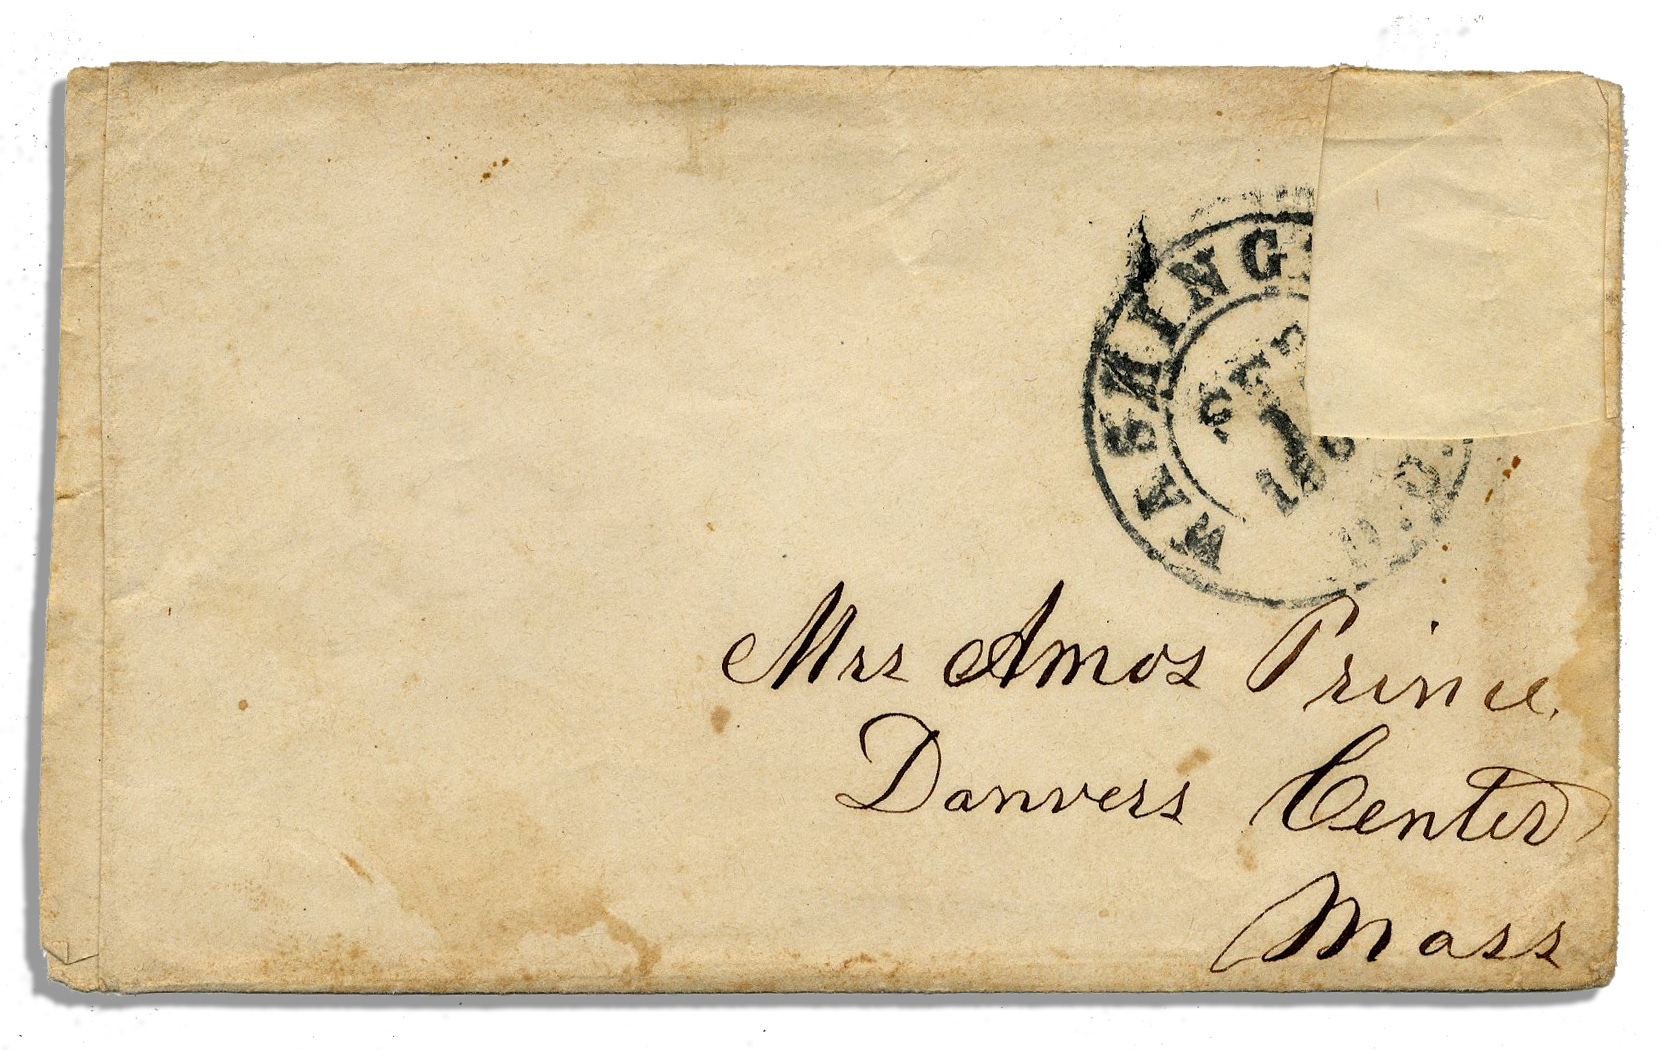 WASHING
SEP
186
D.C.
Mrs Amos Prince.
Danvers Center
Mass